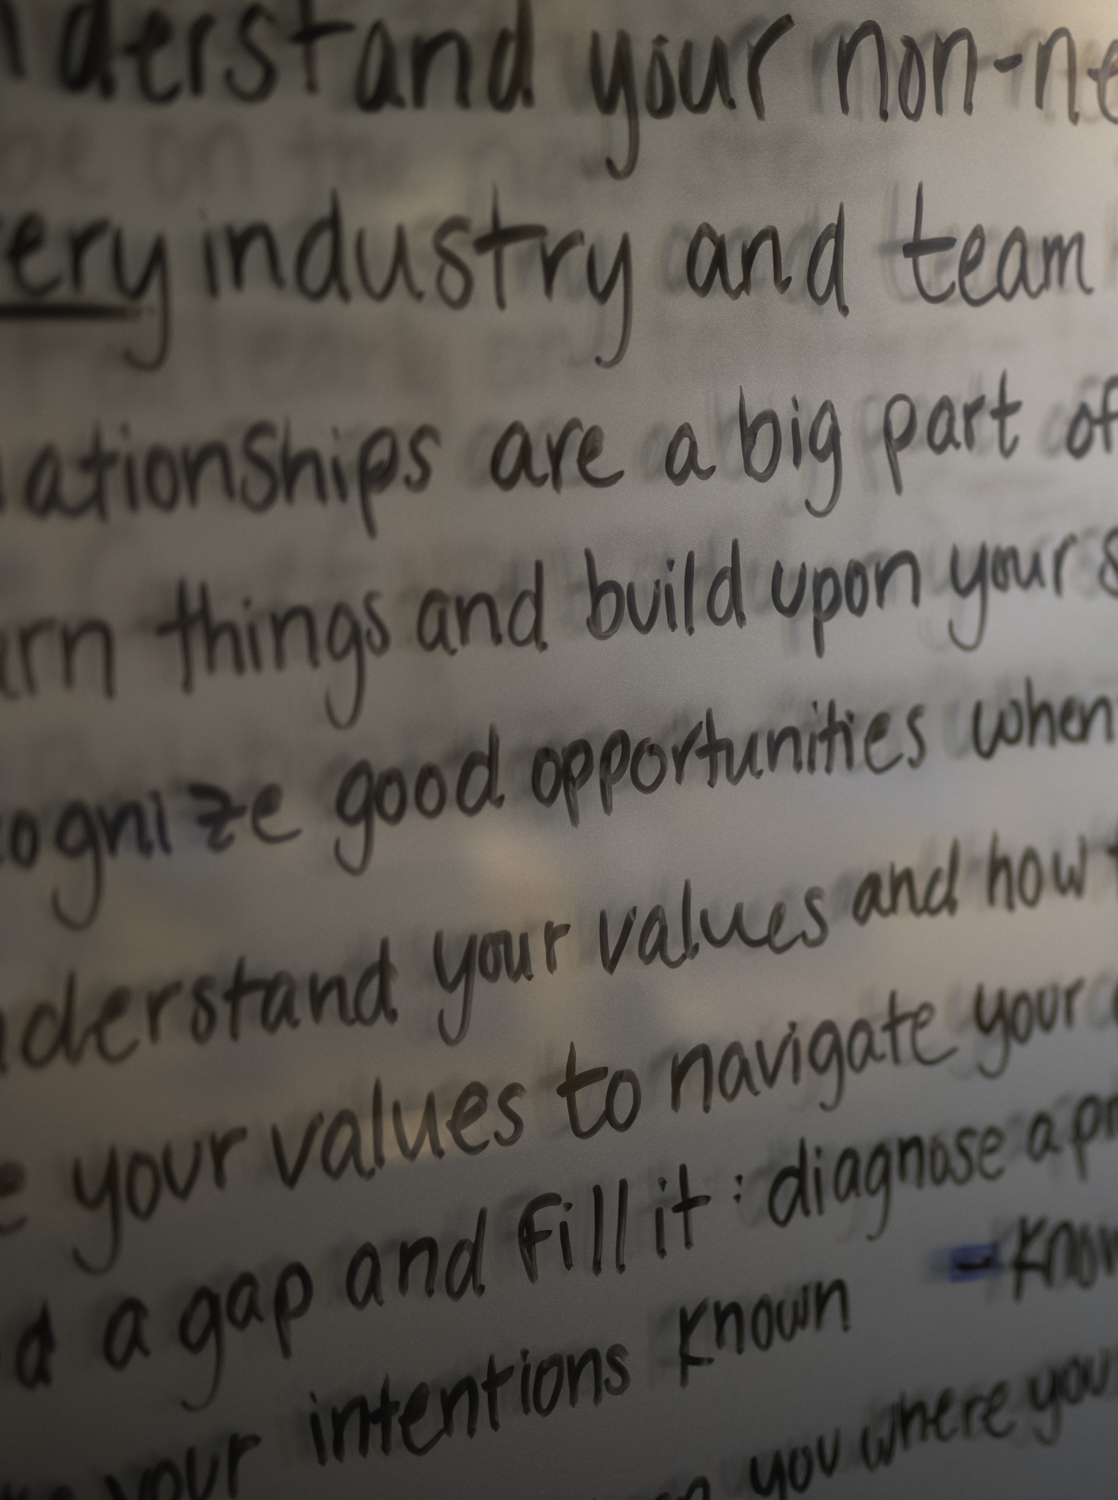 derstand your non-ne
ery industry and team
lationships are a big part of
arn things and build upon your s
cognize good opportunities when
nderstand your values and how t
e your values to navigate your
d a gap and fill it : diagnose a pr
your intentions known - know
you where you